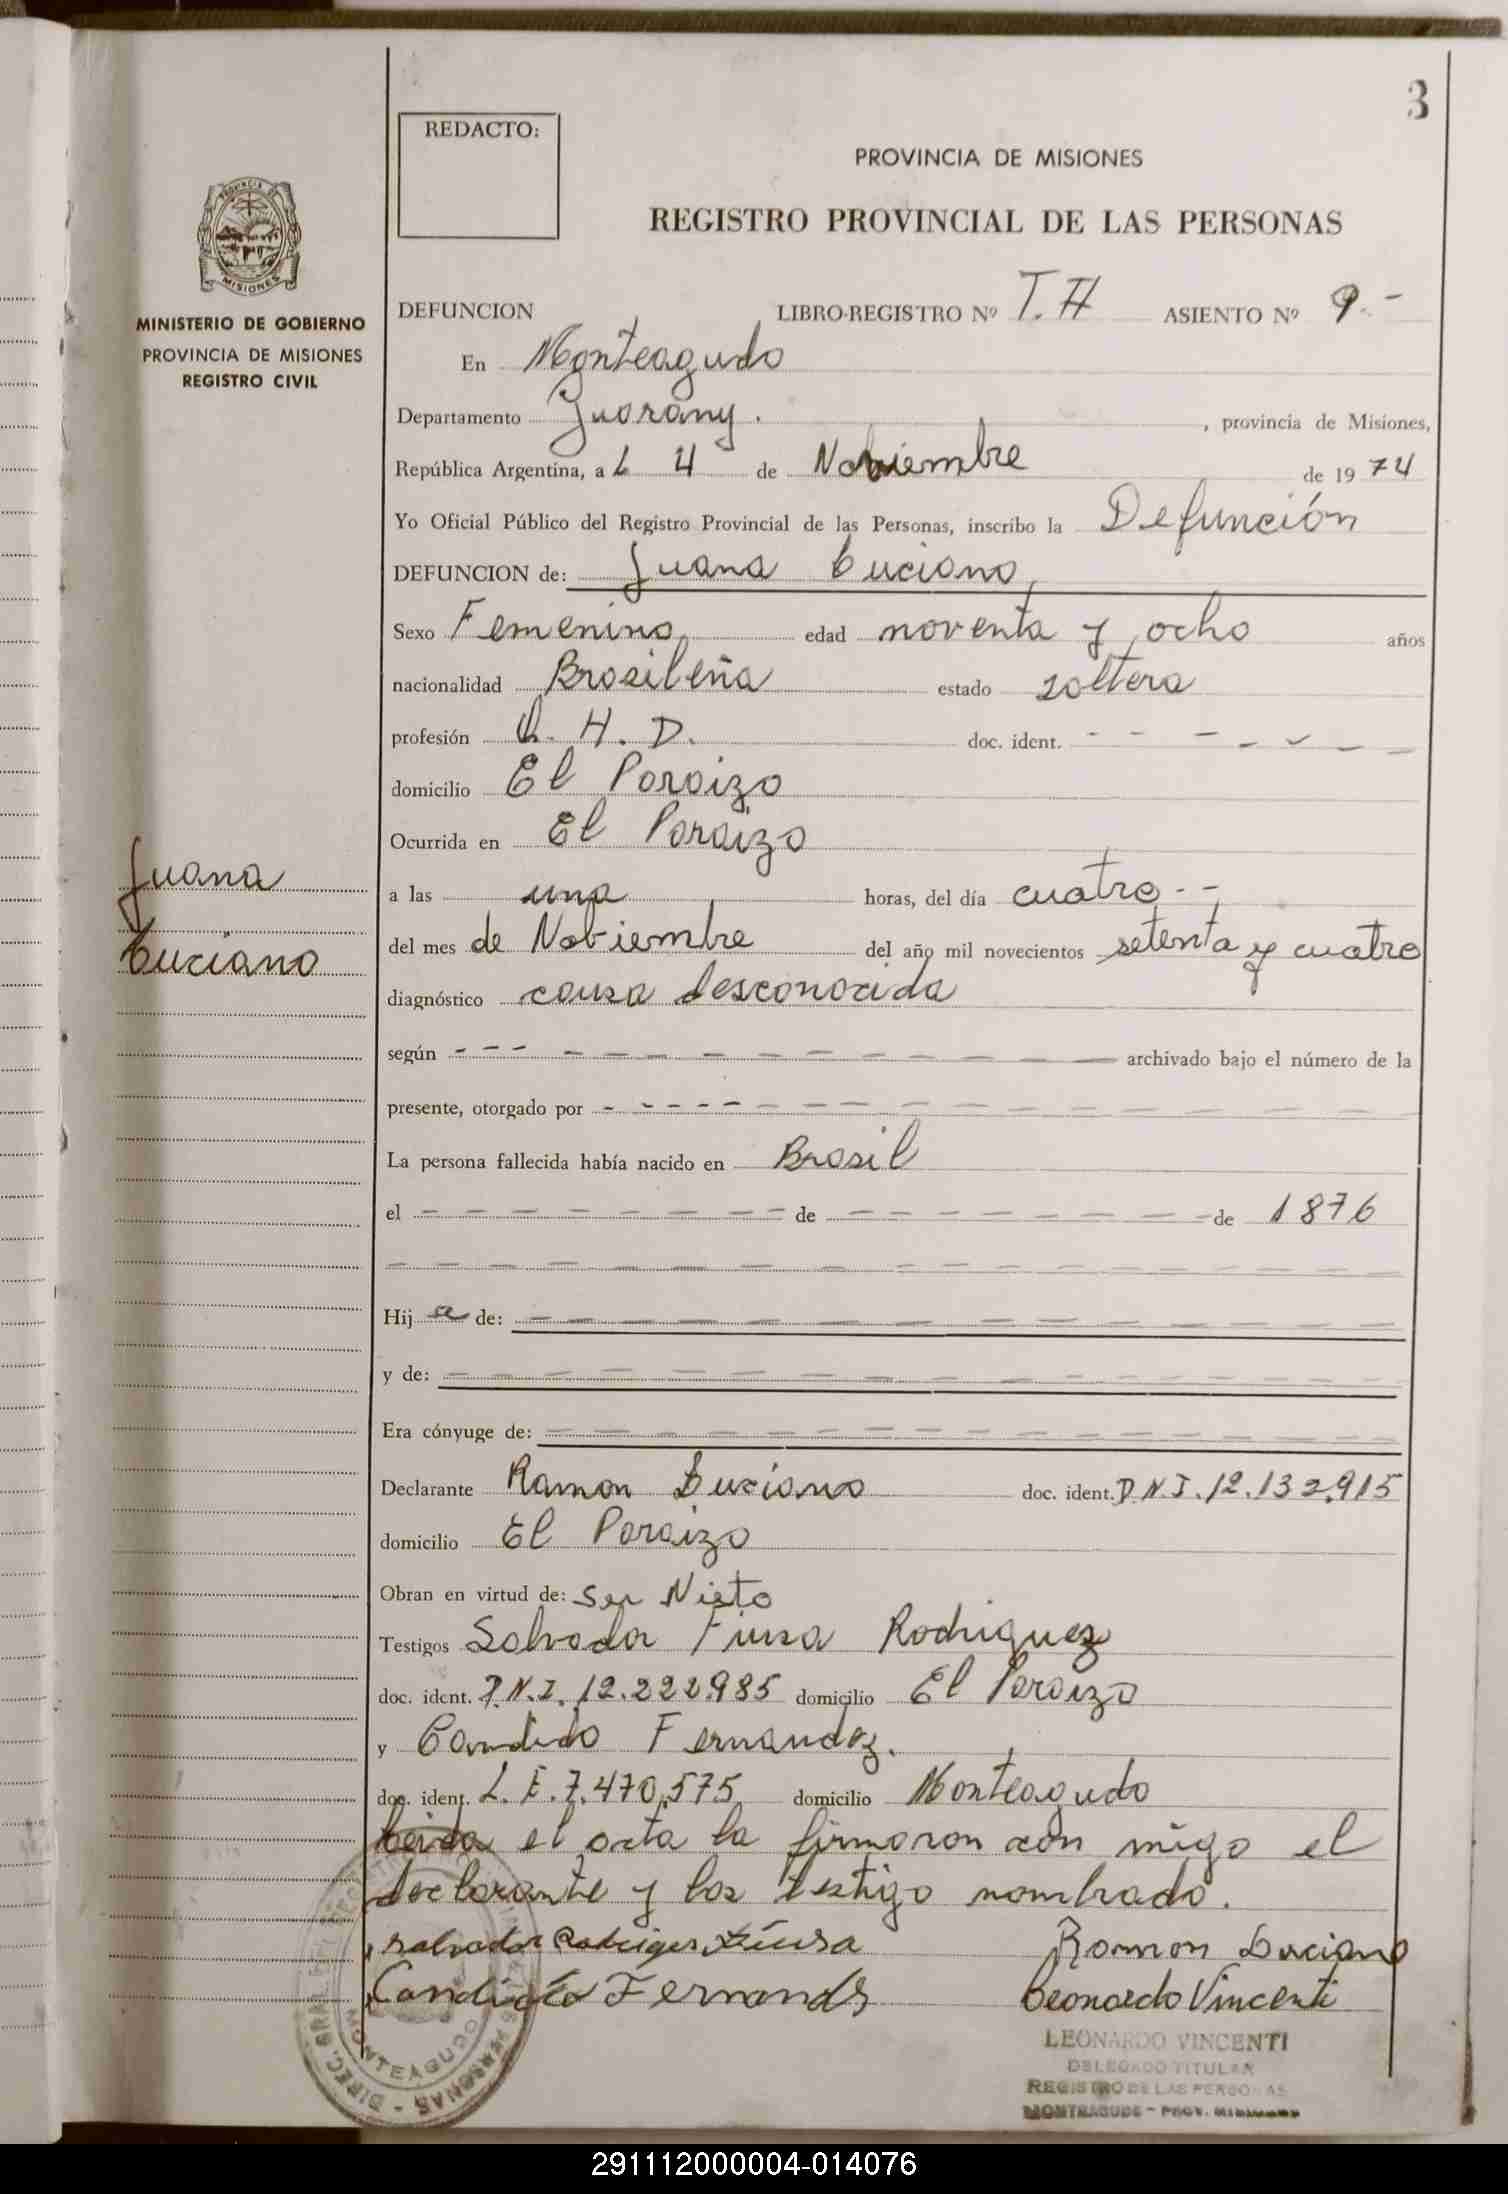 3
REDACTO:
PROVINCIA DE MISIONES
REGISTRO PROVINCIAL DE LAS PERSONAS
PROVINCIA DE
MISIONES
MINISTERIO DE GOBIERNO
PROVINCIA DE MISIONES
REGISTRO CIVIL
DEFUNCION LIBRO-REGISTRO Nº T. H ASIENTO Nº 9.-
En Monteagudo
Departamento Guarany. , provincia de Misiones,
República Argentina, a L 4 de Nobiembre de 1974
Yo Oficial Público del Registro Provincial de las Personas, inscribo la Defunción
DEFUNCION de: Juana Luciano,
Sexo Femenino, edad noventa y ocho años
nacionalidad Brasileña estado soltera
profesión Q. H. D. doc. ident. - - - - - - -
domicilio El Paraizo
Ocurrida en El Paraizo
Juana
Luciano
a las una horas, del día cuatro - -
del mes de Nobiembre del año mil novecientos setenta y cuatro
diagnóstico causa desconocida
según - - - - - - - - - - - - - archivado bajo el número de la
presente, otorgado por - - - - - - - - - - - - - - -
La persona fallecida había nacido en Brasil
el - - - - - - - - de - - - - - - - - de 1876
- - - - - - - - - - - - - - - - - -
Hij a de: - - - - - - - - - - - - - - -
y de: - - - - - - - - - - - - - - - -
Era cónyuge de: - - - - - - - - - - - - - - -
Declarante Ramon Luciano doc. ident. D.N.I. 12.132.915
domicilio El Paraizo
Obran en virtud de: Ser Nieto
Testigos Salvador Fiusa Rodriguez
doc. ident. D.N.I. 12.222.985 domicilio El Paraizo
y Candido Fernandez.
doc. ident. L. E. 7.470.575 domicilio Monteagudo
Leida el acta la firmaron con migo el
declarante y los testigo nombrado.
Salvador Rodrigues Fiusa Ramon Luciano
Candido Fernands Leonardo Vincenti
LEONARDO VINCENTI
DELEGADO TITULAR
REGISTRO DE LAS PERSONAS
MONTEAGUDO - PROV. MISIONES
MONTEAGUDO
291112000004-014076